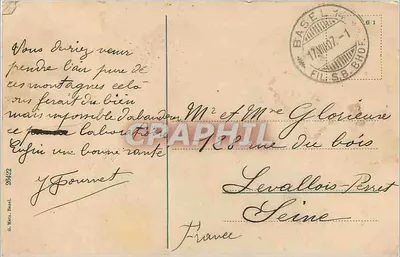 Vous devriez venir
prendre l'air pure de
ces montagnes cela
vous ferait du bien
mais impossible d'abandon
ce laborato
Enfin une bonne santé
J Fournet
BASEL
17 VIII 07.-1
FIL. S.B. BHOF
61
Mr et Mme Glorieuse
128 rue du bois
Levallois-Perret
Seine
France
CPAPHIL
26422
G. Metz, Basel.